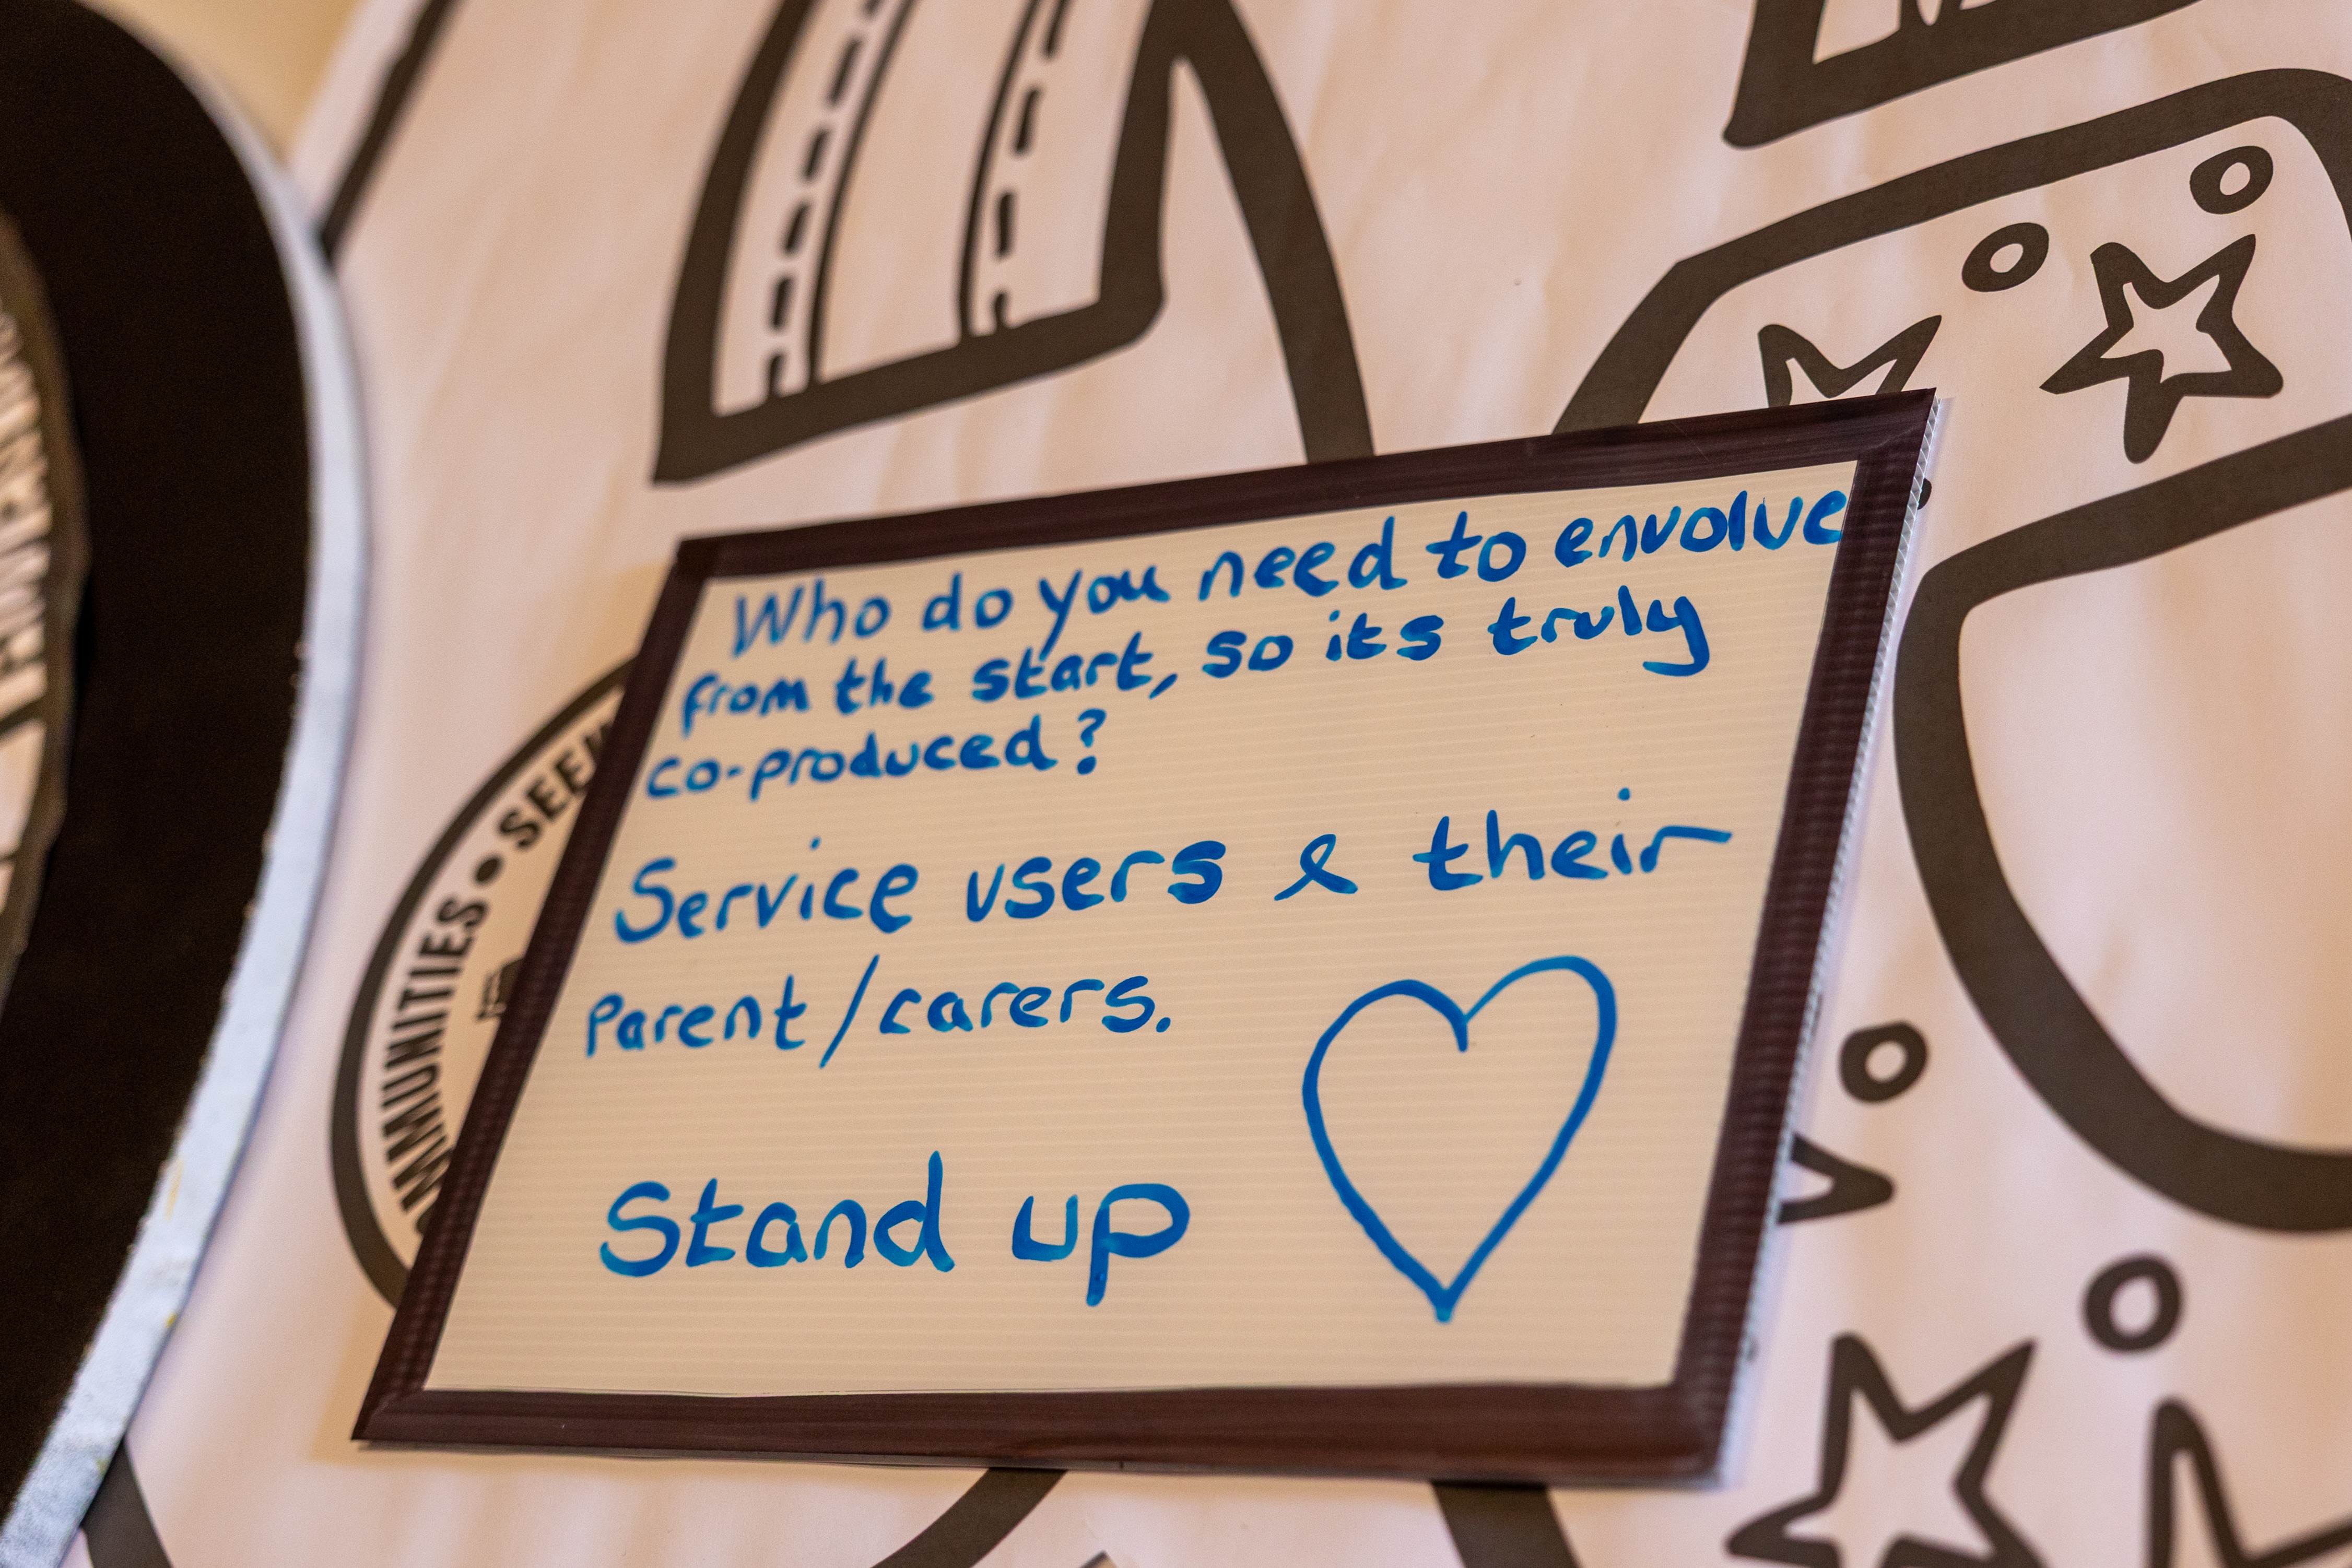 Who do you need to envolve
from the start, so its truly
co-produced?
Service users & their
Parent/carers.
Stand up